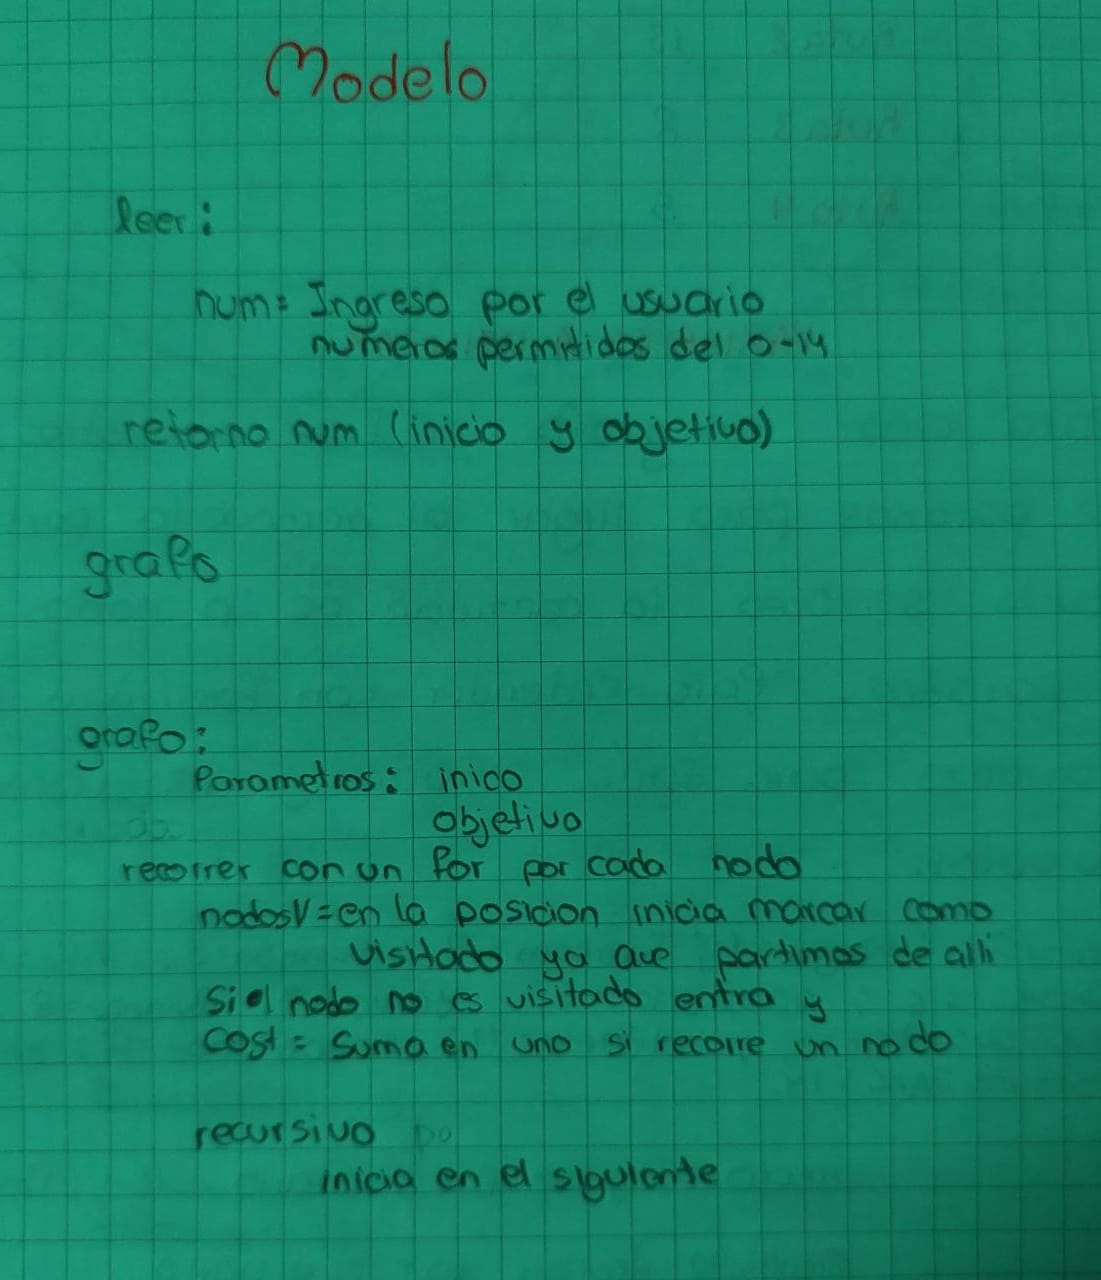 Modelo
leer:
num= Ingreso por el usuario
numeros permitidos del 0-14
retorno num (inicio y objetivo)
grafo
grafo:
Parametros: inico
objetivo
recorrer con un for por cada nodo
nodosV=en la posicion inicia marcar como
visitado ya que partimos de alli
Si el nodo no es visitado entra y
cost = Suma en uno si recorre un nodo
recursivo
inicia en el siguiente